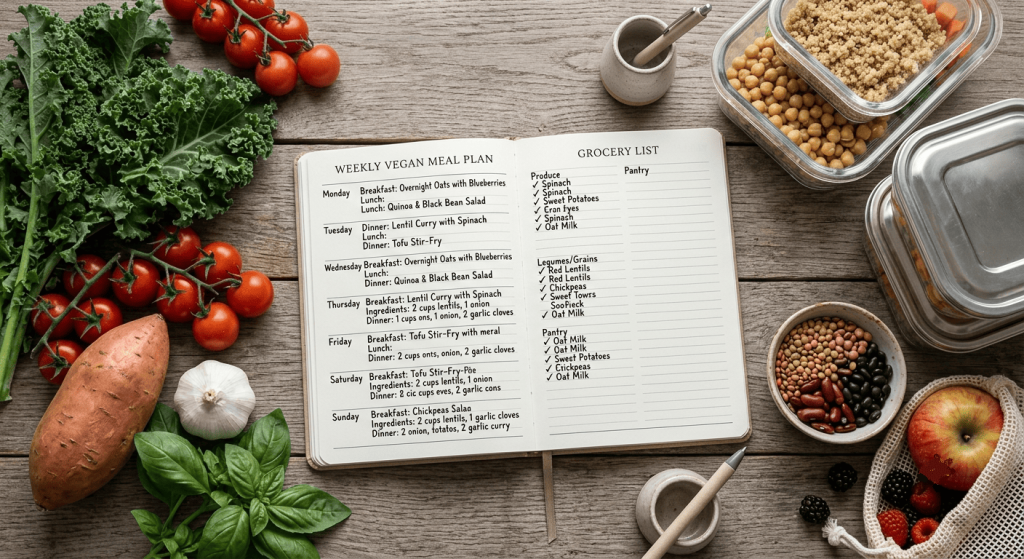 WEEKLY VEGAN MEAL PLAN
Monday Breakfast: Overnight Oats with Blueberries
Lunch:
Lunch: Quinoa & Black Bean Salad
Tuesday Dinner: Lentil Curry with Spinach
Lunch:
Dinner: Tofu Stir-Fry
Wednesday Breakfast: Overnight Oats with Blueberries
Lunch:
Dinner: Quinoa & Black Bean Salad
Thursday Breakfast: Lentil Curry with Spinach
Ingredients: 2 cups lentils, 1 onion
Dinner: 1 cups ons, 1 onion, 2 garlic cloves
Friday Breakfast: Tofu Stir-Fry with meral
Lunch:
Dinner: 2 cups onts, onion, 2 garlic cloves
Saturday Breakfast: Tofu Stir-Fry-Pōe
Ingredients: 2 cups lentils, 1 onion
Dinner: 2 cic cups eves, 2 garlic cons
Sunday Breakfast: Chickpeas Salao
Ingredients: 2 cups lentils, 1 garlic cloves
Dinner: 2 onion, totatos, 2 garlic curry
GROCERY LIST
Produce
✓ Spinach
✓ Spinach
✓ Sweet Potatoes
✓ Eron fyes
✓ Spinash
✓ Oat Milk
Legumes/Grains
✓ Red Lentils
✓ Red Lentils
✓ Chickpeas
✓ Sweef Towrs
SooPieck
✓ Oat Milk
Pantry
✓ Oat Milk
✓ Oat Milk
✓ Sweet Potatoes
✓ Crickpeas
✓ Oat Milk
Pantry